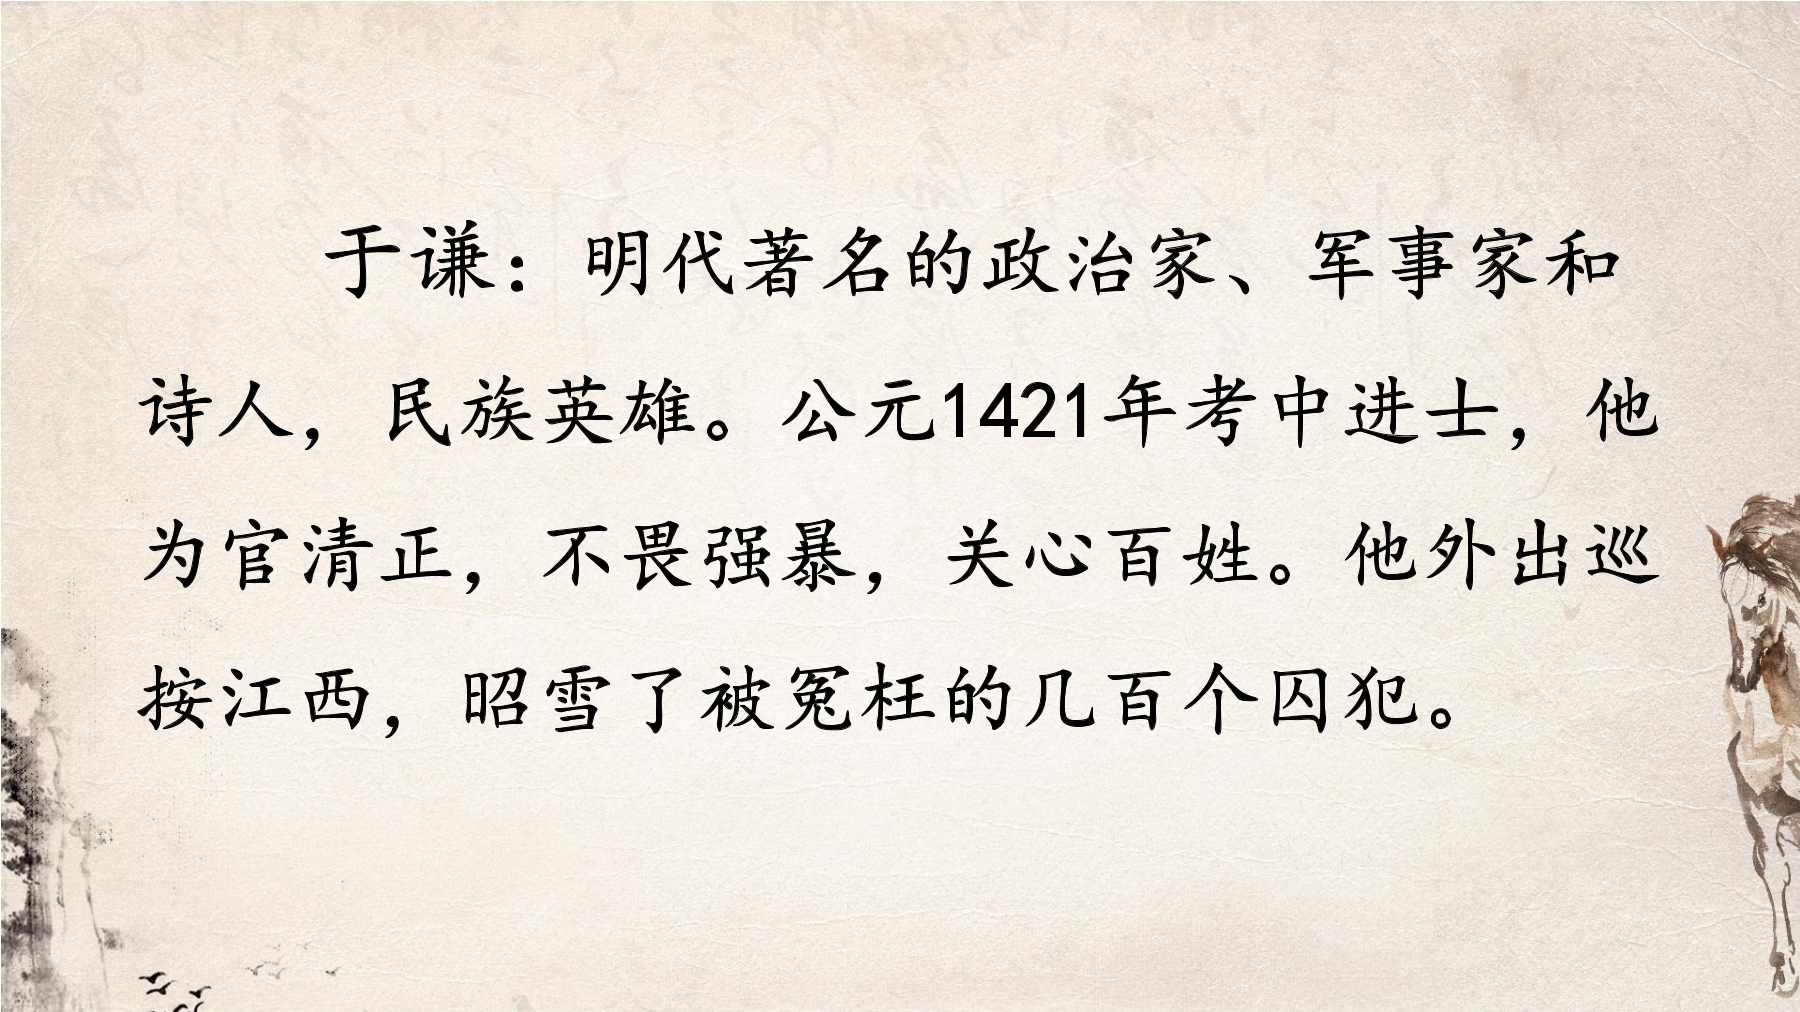 于谦：明代著名的政治家、军事家和
诗人，民族英雄。公元1421年考中进士，他
为官清正，不畏强暴，关心百姓。他外出巡
按江西，昭雪了被冤枉的几百个囚犯。